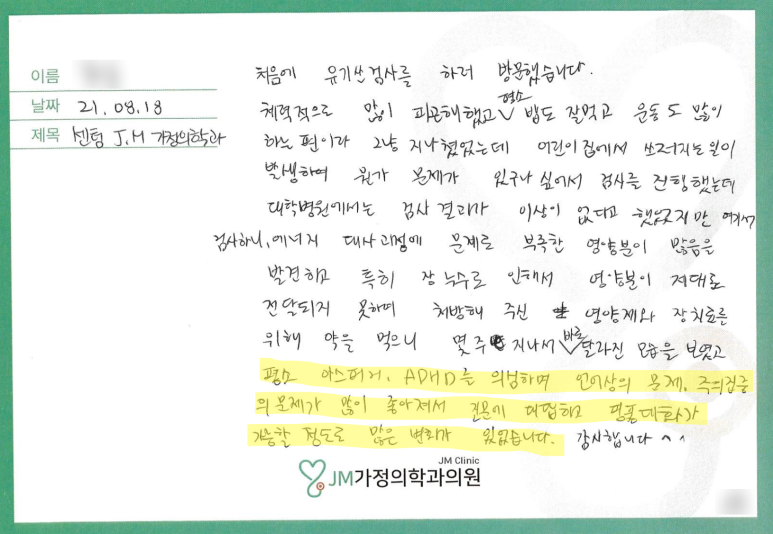 이름
날짜 21.08.18
제목 센텀 J.M 가정의학과
처음에 유기산검사를 하러 방문했습니다.
체력적으로 많이 피곤해했고 평소 밥도 잘먹고 운동도 많이
하는 편이라 그냥 지나쳤었는데 어린이집에서 쓰러지는일이
발생하여 뭔가 문제가 있구나 싶어서 검사를 진행했는데
대학병원에서는 검사 결과가 이상이 없다고 했었지만 여기서
검사하니, 에너지 대사과정에 문제로 부족한 영양분이 많음을
발견하고 특히 장누수로 인해서 영양분이 제대로
전달되지 못하며 처방해 주신 영양제와 장치료를
위해 약을 먹으니 몇주 지나서 바로 달라진 모습을 보였고
평소 아스퍼거, ADHD를 의심하며 언어상의 문제, 주의집중
의 문제가 많이 좋아져서 질문에 대답하고 핑퐁대화가
가능할 정도로 많은 변화가 있었습니다. 감사합니다 ^^
JM Clinic
JM가정의학과의원